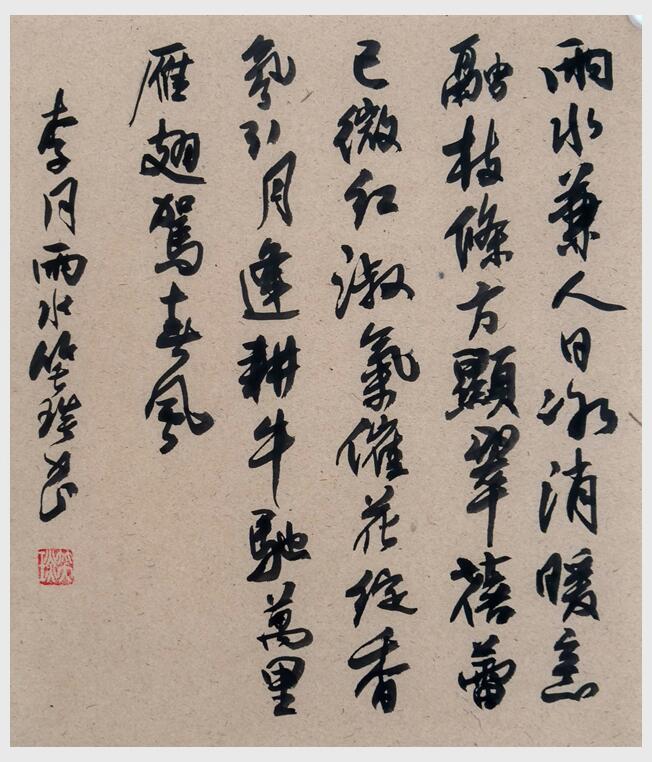 雨水兼人日冰消暖意
融枝條方顯翠蓓蕾
已微紅淑氣催花綻香
氛引月逢耕牛馳萬里
雁翅駕春風
李月雨水